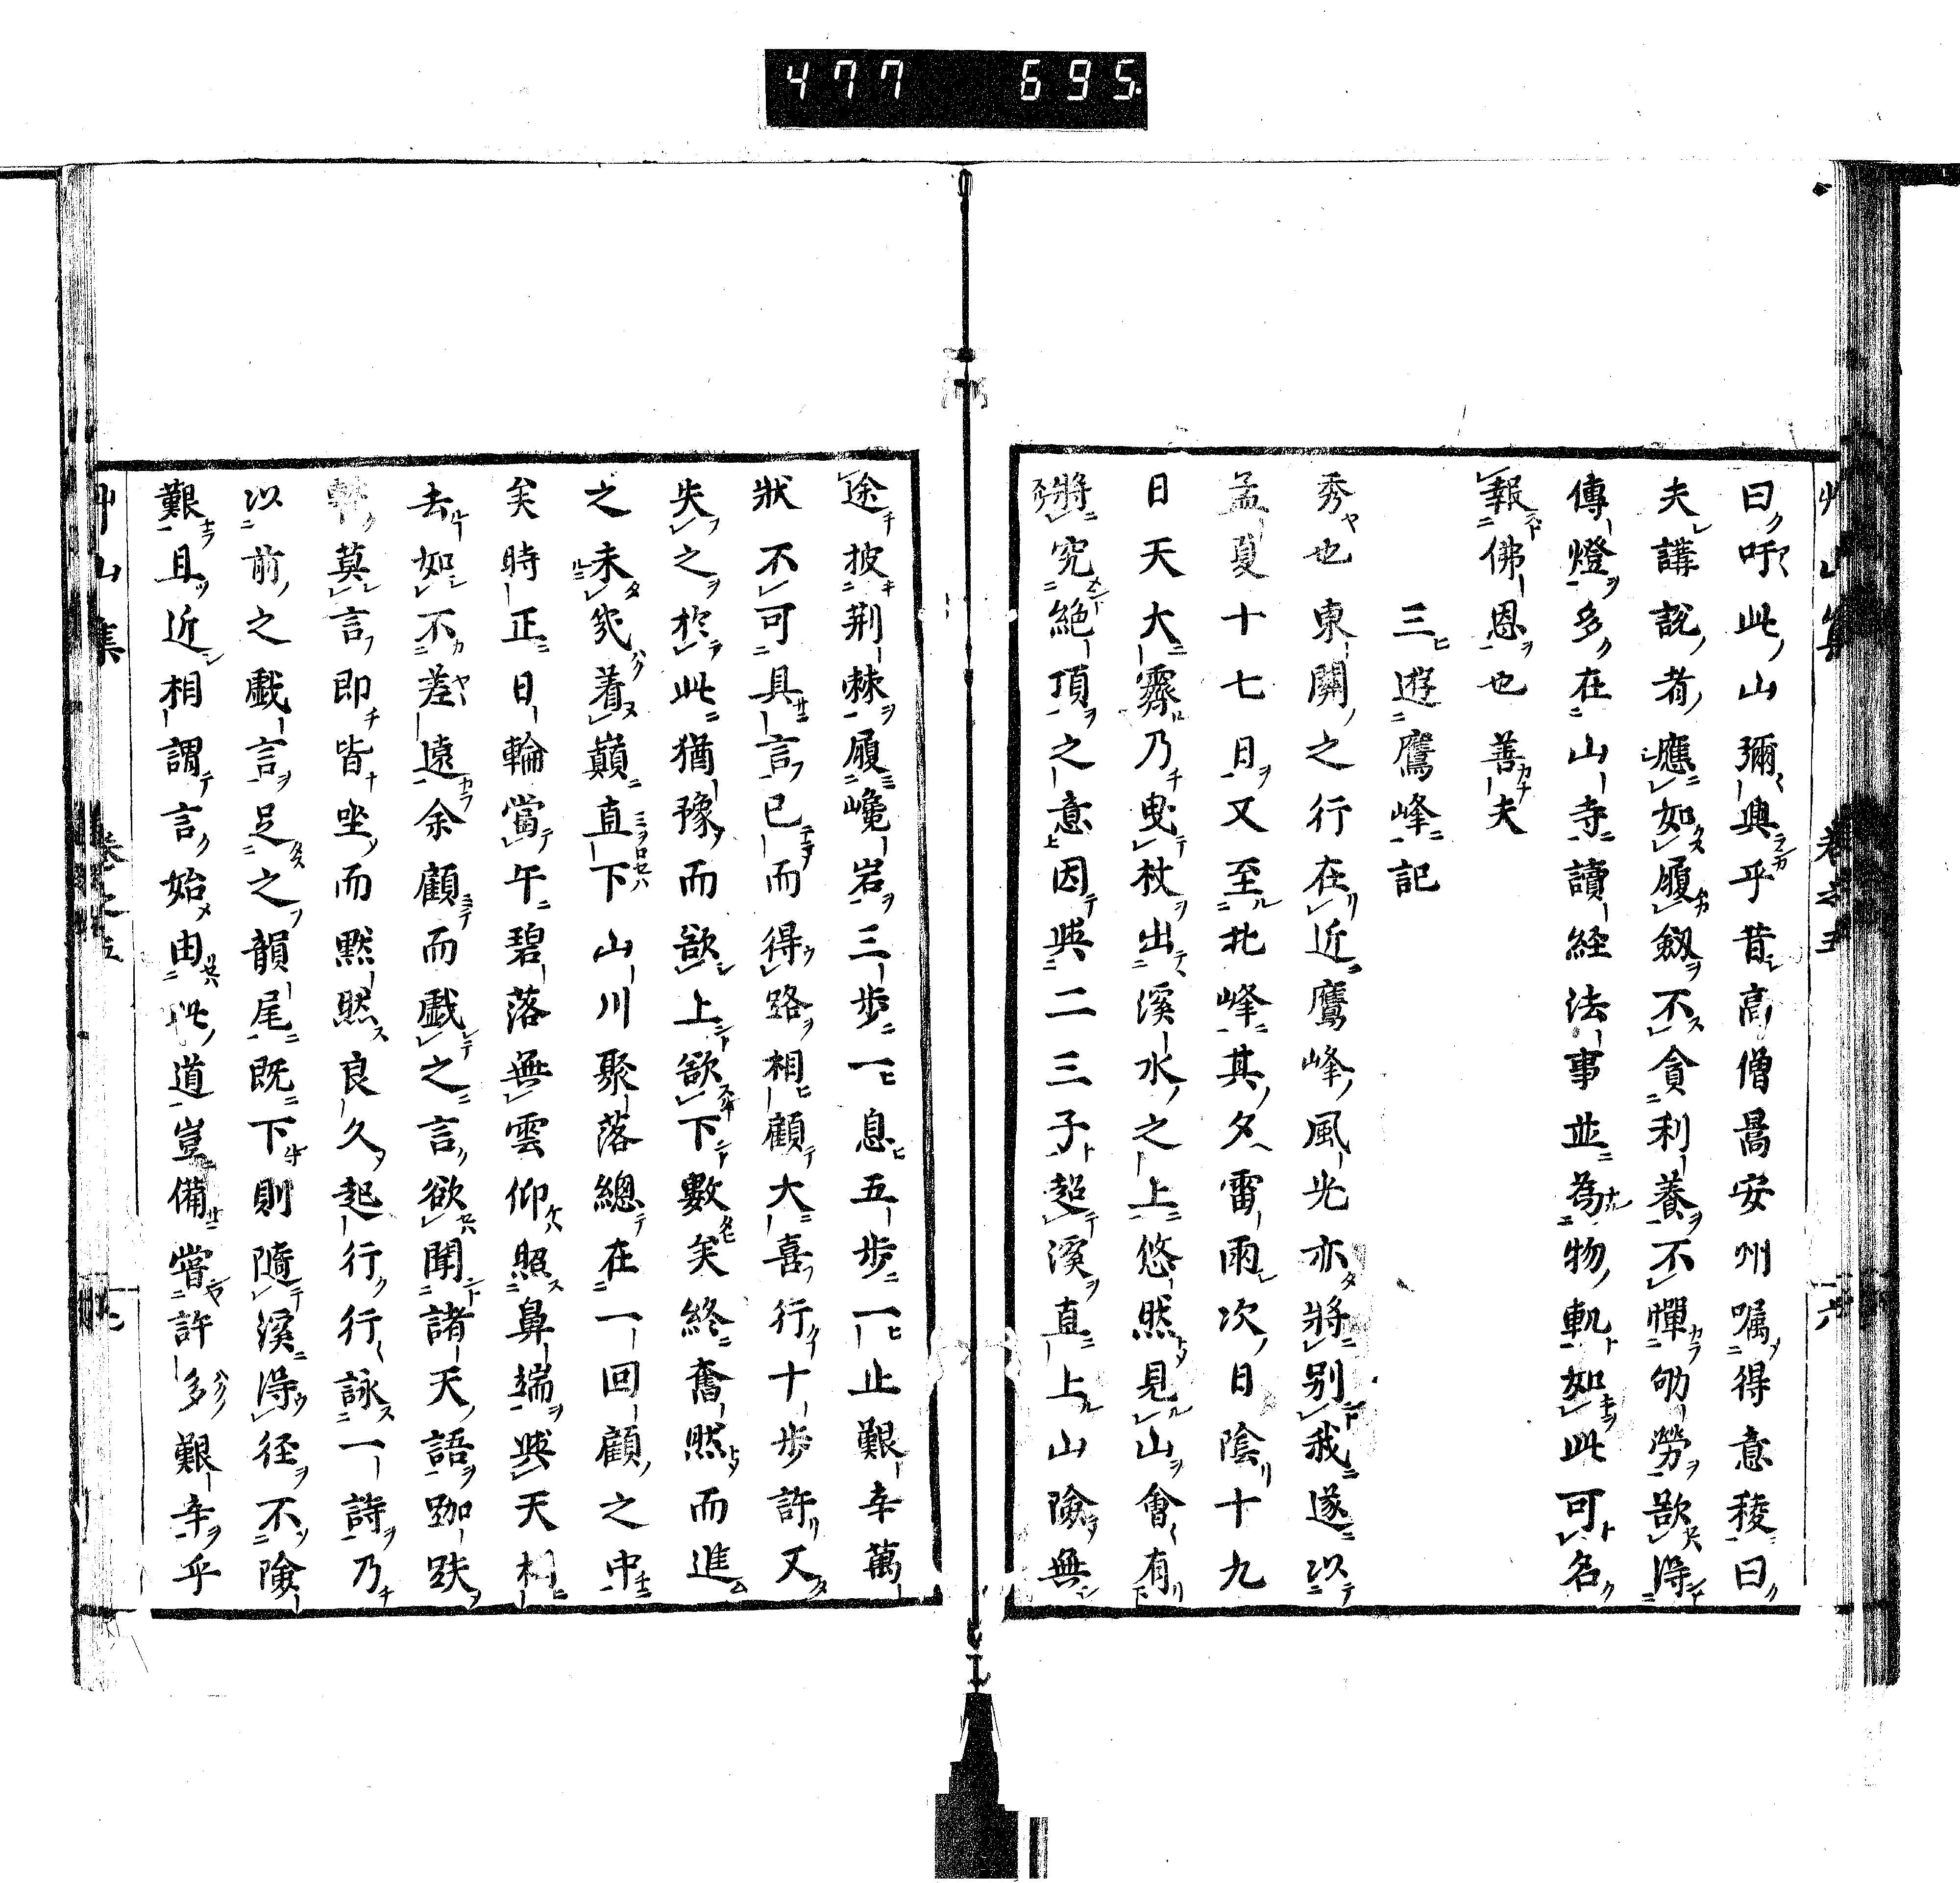 477 695.
曰吁此山彌興乎昔高僧暠安州囑得意稜曰
夫講説者應如履劔不貪利養不憚劬勞歆得
傳燈多在山寺讀経法事並為物軌如此可名
報佛恩也善夫
三遊鷹峰記
秀也東關之行在近鷹峰風光亦將别我遂以
孟夏十七日又至北峰其夕雷雨次日陰十九
日天大霽乃曳杖出溪水之上悠然見山會有
將究絶頂之意因與二三子超溪直上山險無
途披荆棘履巉岩三歩一息五歩一止艱辛萬
狀不可具言已而得路相顧大喜行十歩許又
失之於此猶豫而欲上欲下數矣終奮然而進
之未幾着巔直下山川聚落總在一回顧之中
矣時正日輪當午碧落無雲仰照鼻端與天相
去如不差遠余顧而戯之言欲聞諸天語跏趺
莫言即皆坐而黙然良久起行行詠一詩乃
以前之戯言足之韻尾既下則隨溪得径不險
艱且近相謂言始由此道豈備嘗許多艱辛乎
艸山集